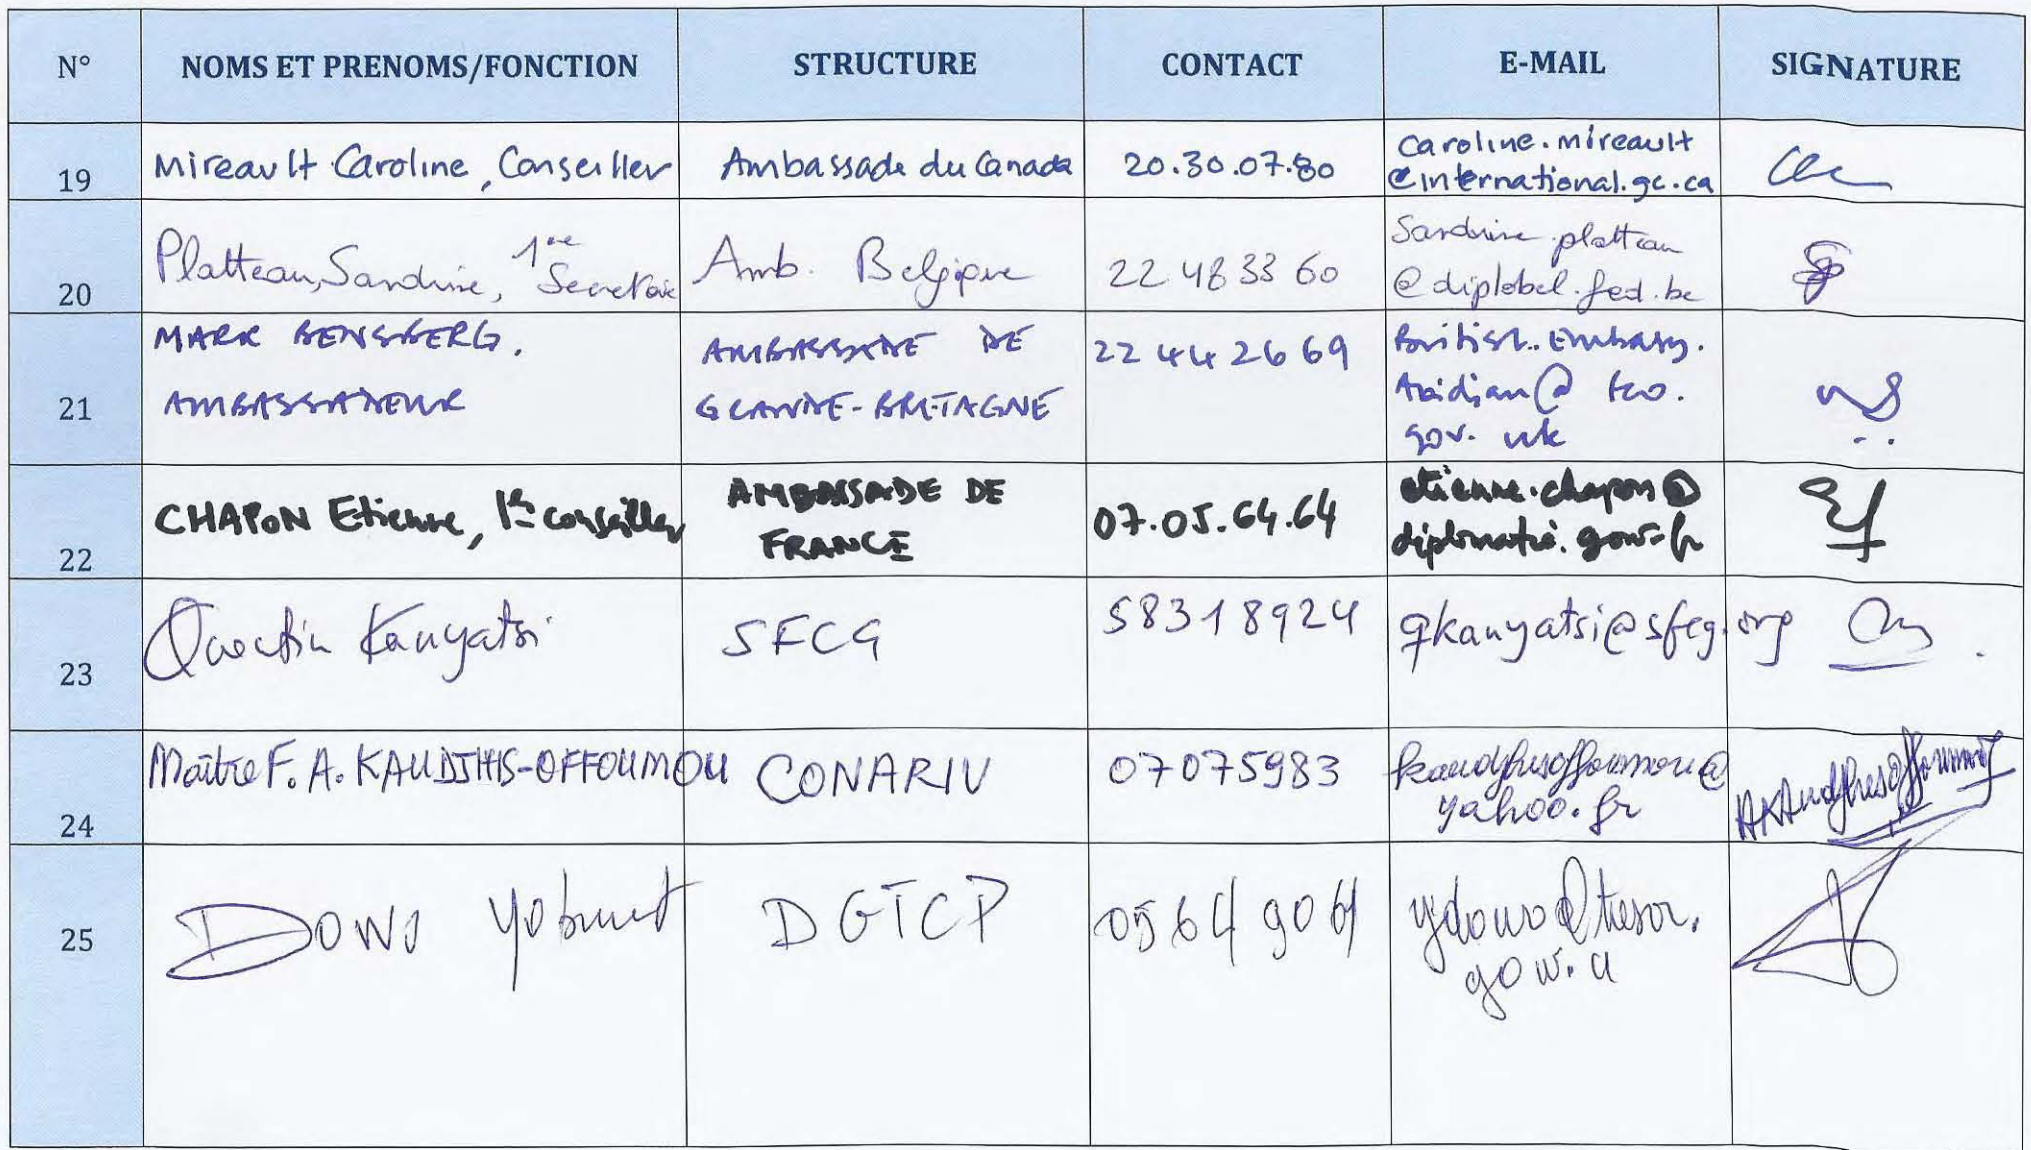 N° NOMS ET PRENOMS/FONCTION STRUCTURE CONTACT E-MAIL SIGNATURE
19 Mireault Caroline, Conseiller Ambassade du Canada 20.30.07.80 caroline.mireault
@international.gc.ca
20 Platteau, Sandrine, 1ère Secrétaire Amb. Belgique 22 48 33 60 Sandrine.platteau
@diplobel.fed.be
21 MARK BENSBERG. AMBASSADE DE 22 44 26 69 British.Embassy.
AMBASSADEUR GRANDE-BRETAGNE Abidjan@fco.
gov.uk
22 CHAPON Etienne, 1er conseiller AMBASSADE DE 07.05.64.64 etienne.chapon@
FRANCE diplomatie.gouv.fr
23 Quentin Kanyatsi SFCG 58318924 qkanyatsi@sfcg.org
24 Maître F. A. KAUDJHIS-OFFOUMOU CONARIV 07075983 kaudjhisoffoumou@
yahoo.fr
25 DGTCP